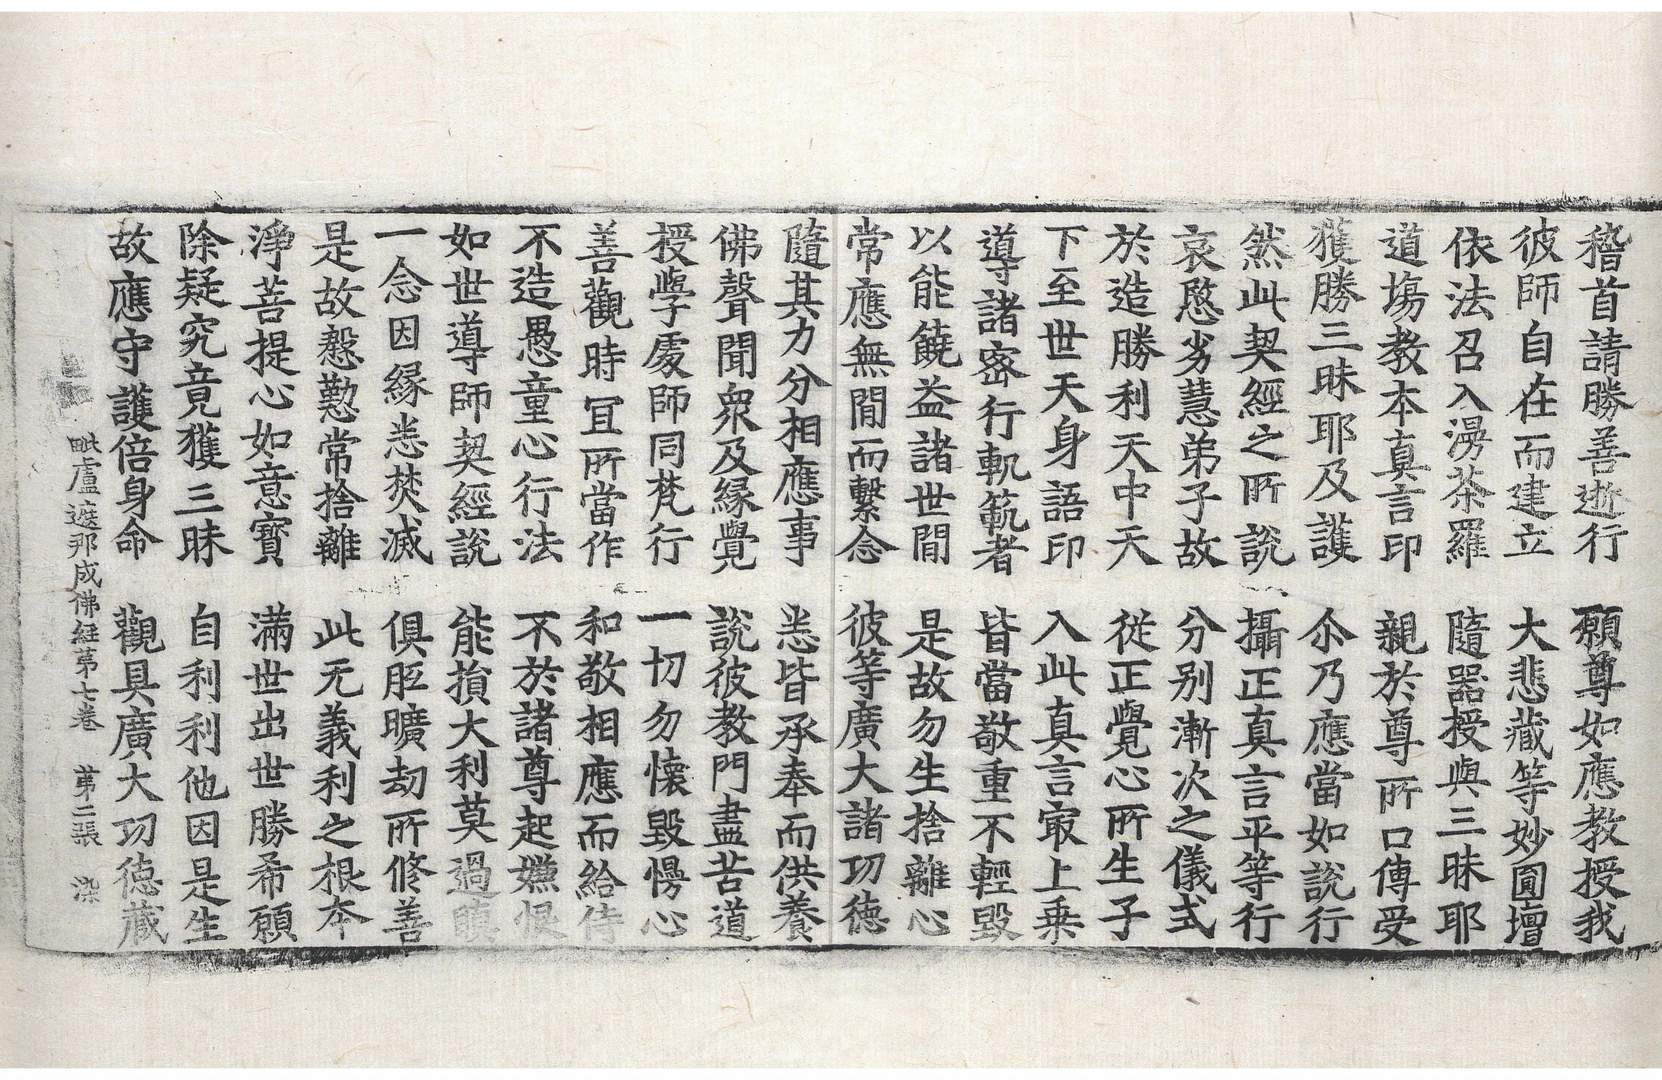 稽首請勝善逝行　願尊如應教授我
彼師自在而建立　大悲藏等妙圓壇
依法召入漫茶羅　隨器授與三昧耶
道場教本真言印　親於尊所口傳受
獲勝三昧耶及護　尒乃應當如說行
然此契經之所說　攝正真言平等行
哀愍劣慧弟子故　分別漸次之儀式
於造勝利天中天　從正覺心所生子
下至世天身語印　入此真言㝡上乗
導諸密行軌範者　皆當敬重不輕毀
以能饒益諸世間　是故勿生捨離心
常應無間而繫念　彼等廣大諸功德
隨其力分相應事　悉皆承奉而供養
佛聲聞衆及緣覺　說彼教門盡苦道
授學處師同梵行　一切勿懷毀慢心
善觀時冝所當作　和敬相應而給侍
不造愚童心行法　不於諸尊起嫌恨
如世導師契經說　能損大利莫過瞋
一念因緣悉焚滅　俱胝曠劫所修善
是故慇懃常捨離　此无義利之根本
淨菩提心如意寶　滿世出世勝希願
除疑究竟獲三昧　自利利他因是生
故應守護倍身命　觀具廣大功德藏
毗盧遮那成佛經第七卷　第二張　染